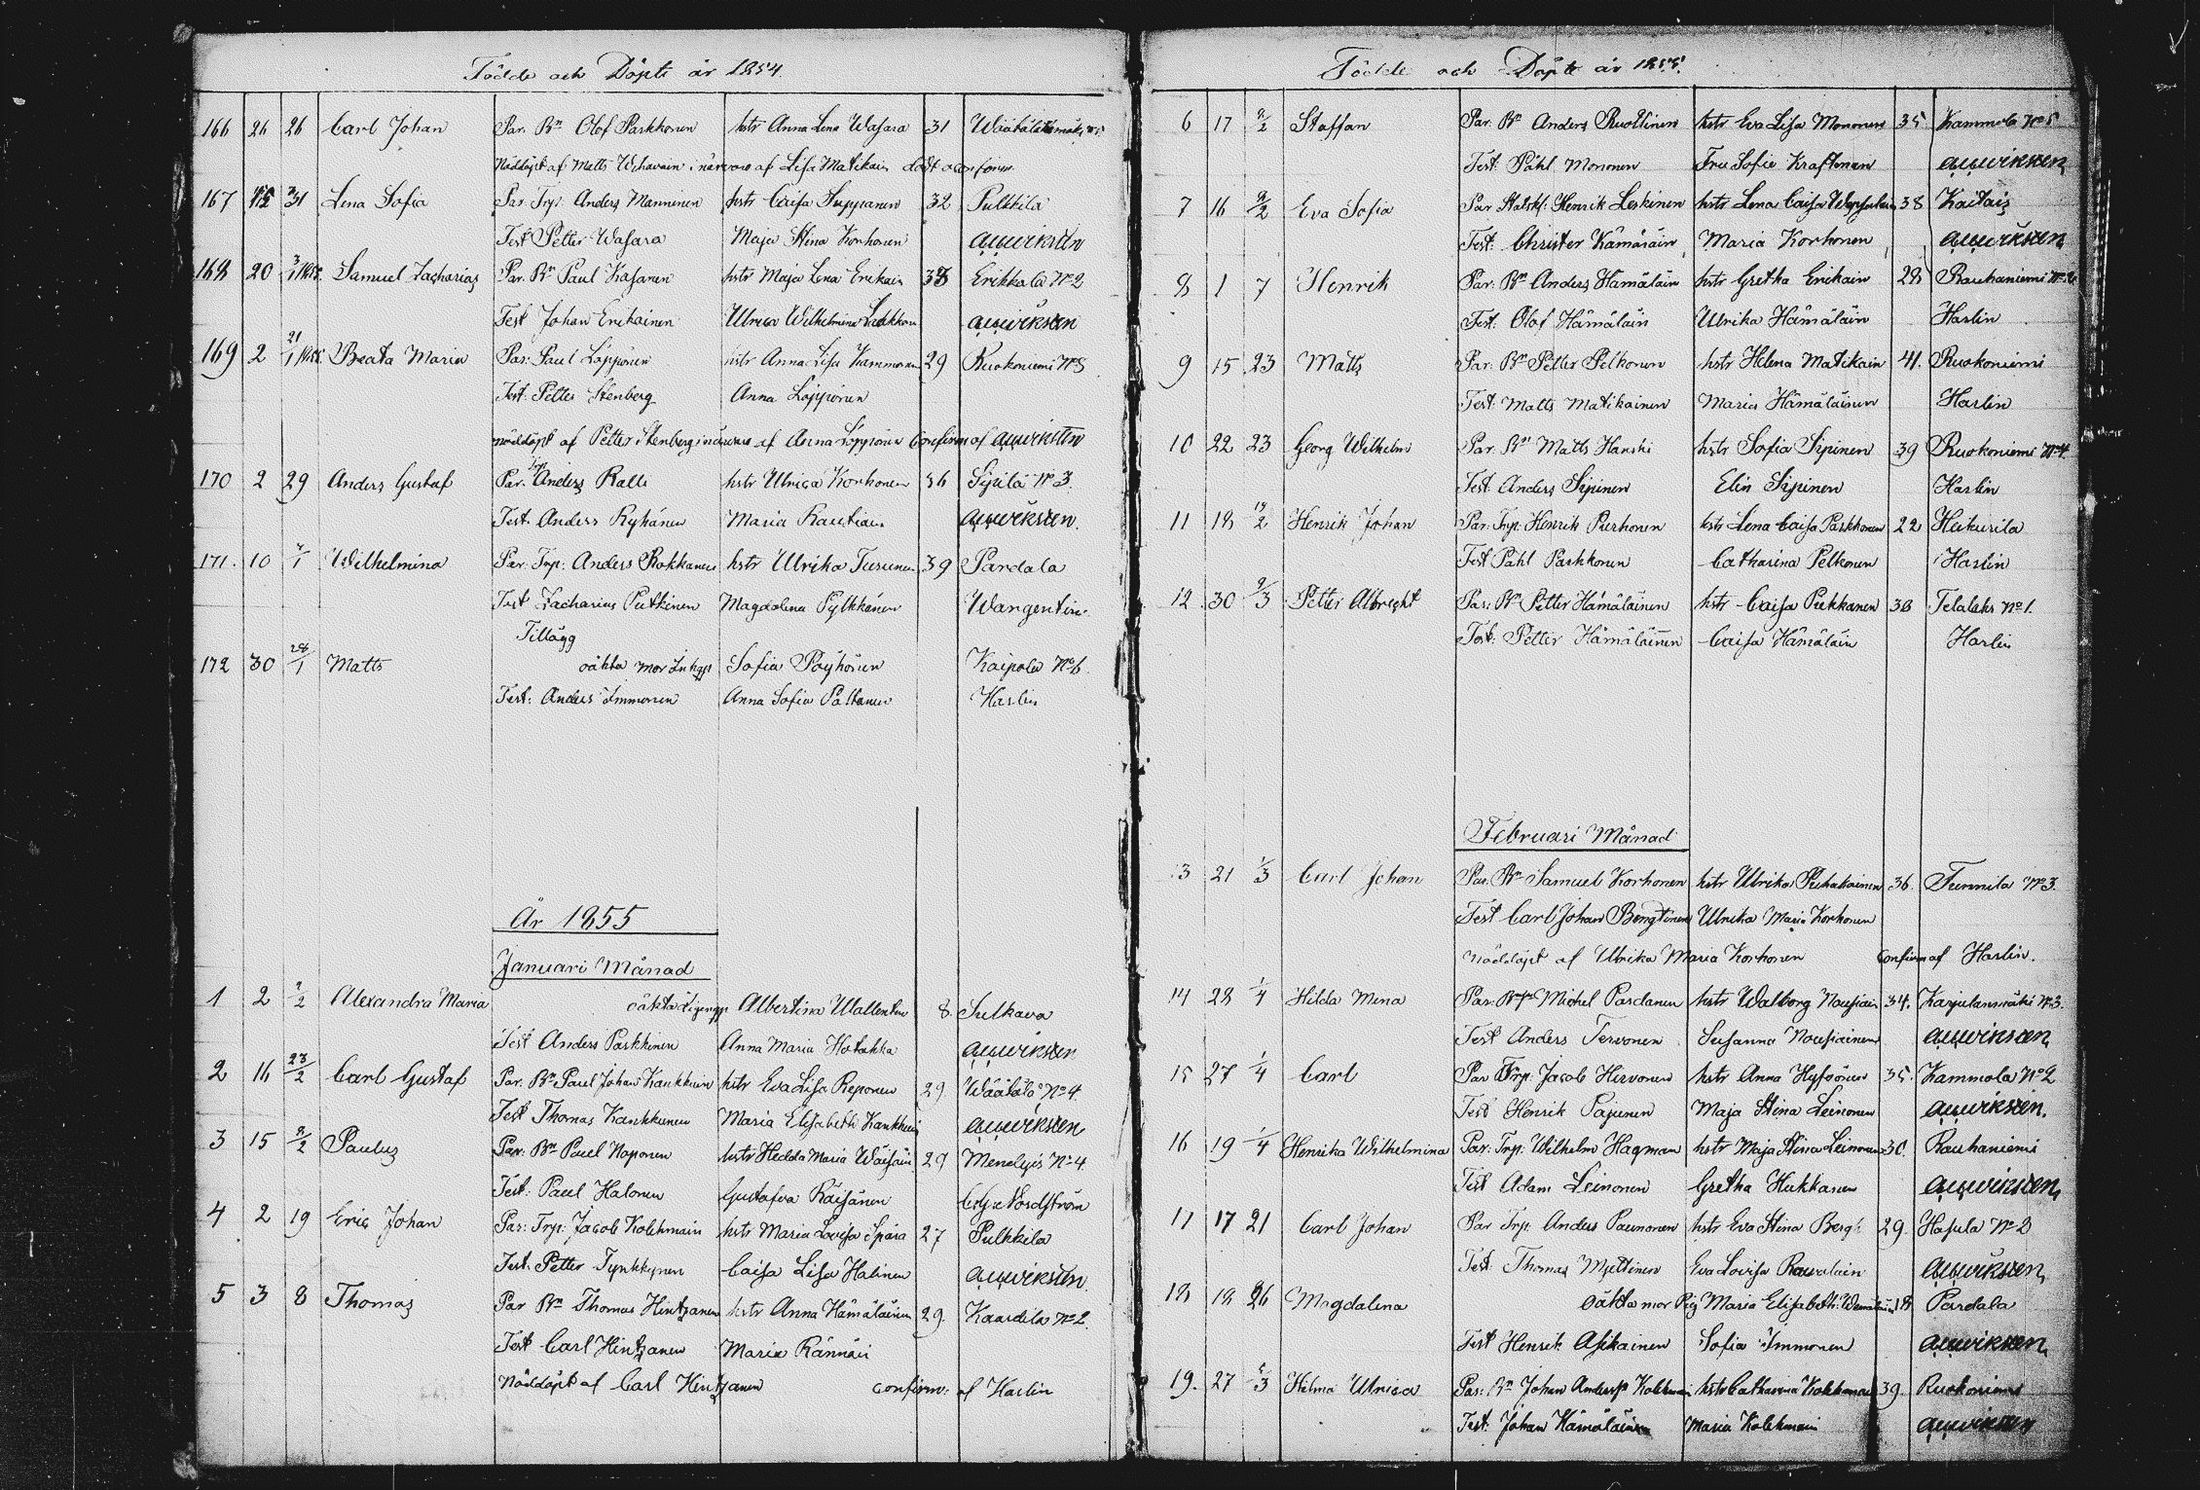 Födde och Döpte år 1854
166 26 26 Carl Johan Par. Bn Olof Parkkonen hstr Anna Lena Wasara 31
Nöddöpt af Matts i närvaro af Lisa Matikain
167 31 Lena Sofia Par. Trp. Anders Manninen hstr Caisa Suppanen 32 Pulkkila
Test Petter Wasara Maja Stina Korhonen
168 20 Samuel Zacharias Par. Bn Paul Kasanen hstr Maja Lena Erikain 38 Erikkala No 2
Test Johan Erikainen Ulrica Wilhelmina
169 2 21/1 Beata Maria Par. Paul Löppönen hstr Anna Lisa Kammonen 29 Ruokoniemi No 8
Test. Petter Stenberg Anna Löppönen
nöddöpt af Petter Stenberg i närvaro af Anna Löppönen Confirm af
170 2 29 Anders Gustaf Par. Trp Anders Ralli hstr Ulrica Korhonen 36 Sipilä No 3.
Test. Anders Ryhänen Maria Rautiain
171. 10 4/1 Wilhelmina Par. Trp. Anders Rokkanen hstr Ulrika Turunen 39 Pardala
Test Zacharias Putkinen Magdalena Pylkkänen Wangentin.
Tillägg
172 30 28/1 Matts oäkta mor Inhgs Sofia Pöyhönen Kaipola No 6.
Test: Anders Immonen Anna Sofia Paltanen Harlin
År 1855
Januari Månad
1 2 2/2 Alexandra Maria oäkta Albertina Wallenten 8. Sulkava
Test Anders Parkkinen Anna Maria Hatakka
2 16 23/2 Carl Gustaf Par. Bn Paul Johan Kankkuin hstr Eva Lisa Reponen 29 Väätälä No 4.
Test Thomas Kankkunen Maria Elisabeth Kankkuin
3 15 2/2 Paulus Par. Bn Paul Naponen hstr Hedda Maria Wäisäin 29 No 4
Test. Paul Halonen Gustafva Räisänen Nordström
4 2 19 Eric Johan Par: Trp. Jacob Kolehmain hstr Maria Lovisa Spära 27 Pulkkila
Test. Petter Tynkkynen Caisa Lisa Halinen
5 3 8 Thomas Par Bn Thomas Hintzanen hstr Anna Hämäläinen 29. Kaartila No 2.
Test Carl Hintzanen Maria Rännäri
Nöddöpt af Carl Hintzanen confirm. af Harlin
Födde och Döpte år 1855.
6 17 2/2 Staffan Par. Bn Anders Ruottinen hstr Eva Lisa Mononen 35 Kammola No 5
Test. Påhl Mononen Fru Sofia Kraftman
7 16 2/2 Eva Sofia Par Statskf. Henrik Leskinen hstr Lena Caisa 38 Kaitais
Test: Christer Kämäräin Maria Korhonen
8 1 7 Henrik Par: Bn Anders Hämäläin hstr Gretha Erikain 28 Rauhaniemi
Test: Olof Hämäläin Ulrika Hämäläin Harlin
9 15 23 Matts Par. Bn Petter Pelkonen hstr Helena Matikain 41. Ruokoniemi
Test: Matts Matikainen Maria Hämäläinen Harlin
10 22 23 Georg Wilhelm Par. Bn Matts Hanski hstr Sofia Sipinen 39 Ruokoniemi No 4.
Test. Anders Sipinen Elin Sipinen Harlin
11 18 Henrik Johan Par: Trp. Henrik Purhonen hstr Lena Caisa Parkkonen 22 Heikurila
Test Påhl Parkkonen Catharina Pelkonen Harlin
12 30 9/3 Petter Albrecht Par: Bn Petter Hämäläinen hstr Caisa Pukkanen 38 Telalaks No 1.
Test: Petter Hämäläinen Caisa Hämäläin Harlin
Februari Månad
13 21 1/3 Carl Johan Par. Bn Samuel Korhonen hstr Ulrika Puhakainen 36. Tummila No 3.
Test Carl Johan Bengtinen Ulrika Maria Korhonen
Nöddöpt af Ulrika Maria Korhonen Confirm af Harlin.
14 28 1/4 Hilda Mina Par: Michel Pardanen hstr Walborg Nousiain 34. Karjulanmäki No 3.
Test Anders Tervonen Susanna Nousiainen
15 27 1/4 Carl Par Trp. Jacob Hirvonen hstr Anna Hyfvönen 35. Kammola No 2
Test Henrik Pajunen Maja Stina Leinonen
16 19 1/4 Henrika Wilhelmina Par. Trp. Wilhelm Hagman hstr Maja Stina Leinonen 30. Rauhaniemi
Test Adam Leinonen Gretha Hukkanen
17 17 21 Carl Johan Par Trp. Anders Paunonen hstr Eva Stina Bergh 29. Hasula No 2
Test. Thomas Myttinen Eva Lovisa Rawalain
18 18 26 Magdalena Oäkta mor Pig Maria Elisabeth 18 Pardala
Test Henrik Asikainen Sofia Immonen
19. 27 5/3 Hilma Ulrica Par: Bn Johan Anderss Kolehmai hstr Catharina 39. Ruokoniemi
Test. Johan Hämäläinen Maria Kolehmain